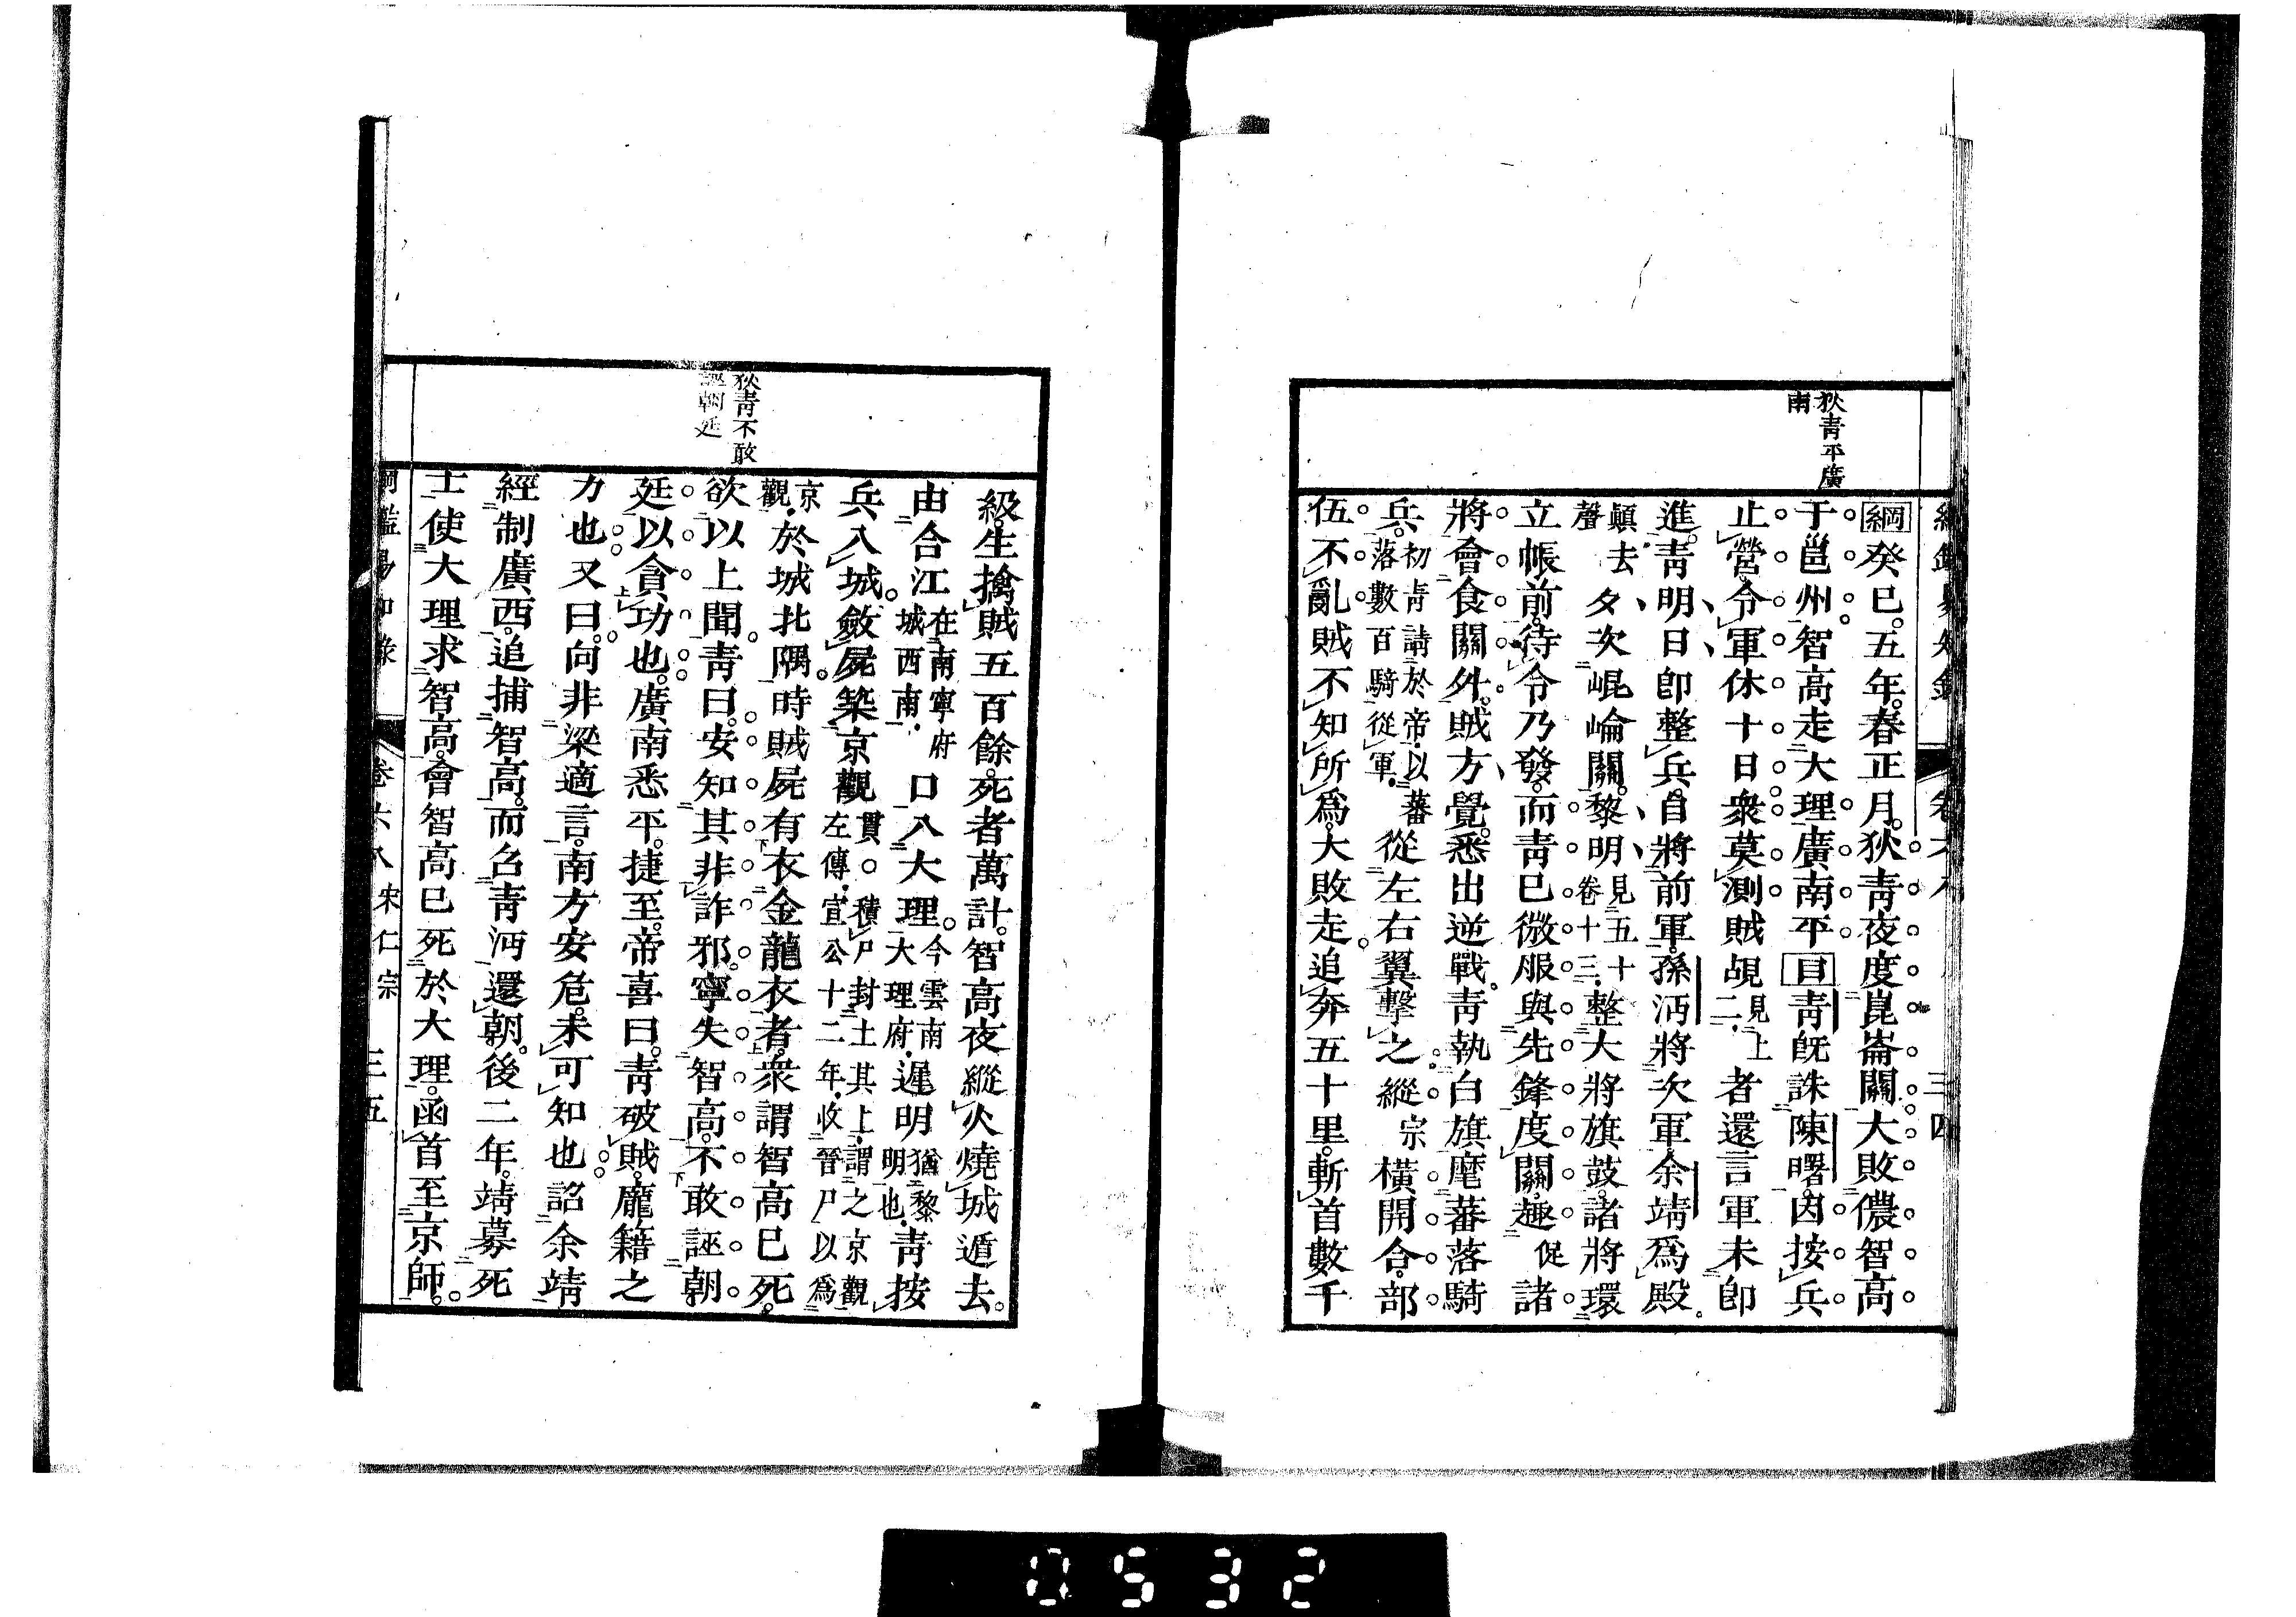 狄青平廣
南
綱癸巳。五年。春正月。狄青夜度崑崙關大敗儂智高
于邕州。智高走大理廣南平目青旣誅陳曙。因按兵
止營。令軍休十日衆莫測賊覘見上二者還言軍未卽
進。青明日卽整兵。自將前軍。孫沔將次軍。余靖爲殿。
顚去聲夕次崐崘關。黎明見五十卷十三整大將旗鼓。諸將環
立帳前。待令乃發。而青已微服與先鋒度關。趣促諸
將會食關外。賊方覺。悉出逆戰。青執白旗麾蕃落騎
兵。初青請於帝以蕃落數百騎從軍從左右翼擊之縱宗橫開合。部
伍不亂賊不知所爲。大敗走。追奔五十里。斬首數千
三四
狄青不敢
誣朝廷
級。生擒賊五百餘。死者萬計。智高夜縱火燒城遁去。
由合江在南寧府城西南口入大理。今雲南大理府遲明猶黎明也青按
兵入城。斂屍築京觀貫○積尸封土其上謂之京觀左傳宣公十二年收晉尸以爲
京觀於城北隅。時賊屍有衣金龍衣者。衆謂智高已死。
欲以上聞。青曰。安知其非詐邪。寧失智高。不敢誣朝
廷以貪功也。廣南悉平。捷至。帝喜曰。青破賊。龐籍之
力也又曰。向非梁適言。南方安危。未可知也詔余靖
經制廣西。追捕智高。而召青沔還朝。後二年。靖募死
士使大理求智高。會智高已死於大理。函首至京師。
卷六八宋仁宗 三五
0532